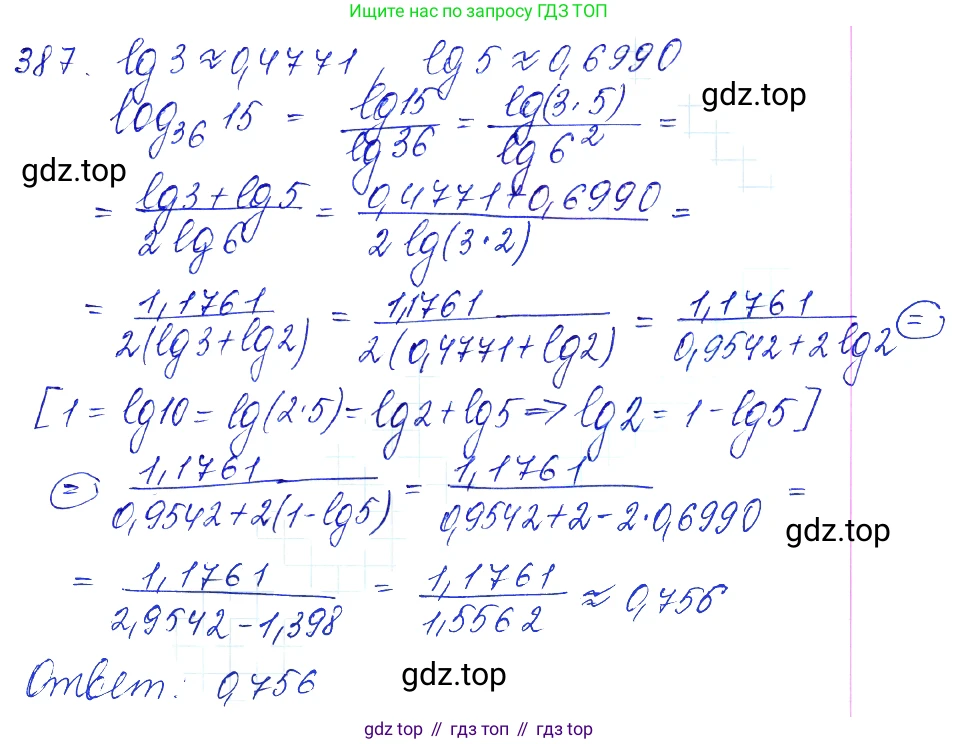 Ищите нас по запросу ГДЗ ТОП
387. lg 3 ≈ 0,4771, lg 5 ≈ 0,6990
log₃₆ 15 = lg 15 / lg 36 = lg(3·5) / lg 6² =
gdz.top
gdz.top
= (lg 3 + lg 5) / (2 lg 6) = (0,4771 + 0,6990) / (2 lg(3·2)) =
= 1,1761 / (2(lg 3 + lg 2)) = 1,1761 / (2(0,4771 + lg 2)) = 1,1761 / (0,9542 + 2 lg 2) =
[1 = lg 10 = lg(2·5) = lg 2 + lg 5 => lg 2 = 1 - lg 5]
= 1,1761 / (0,9542 + 2(1 - lg 5)) = 1,1761 / (0,9542 + 2 - 2·0,6990) =
gdz.top
= 1,1761 / (2,9542 - 1,398) = 1,1761 / 1,5562 ≈ 0,756
Ответ: 0,756
gdz.top
gdz top // гдз топ // gdz top